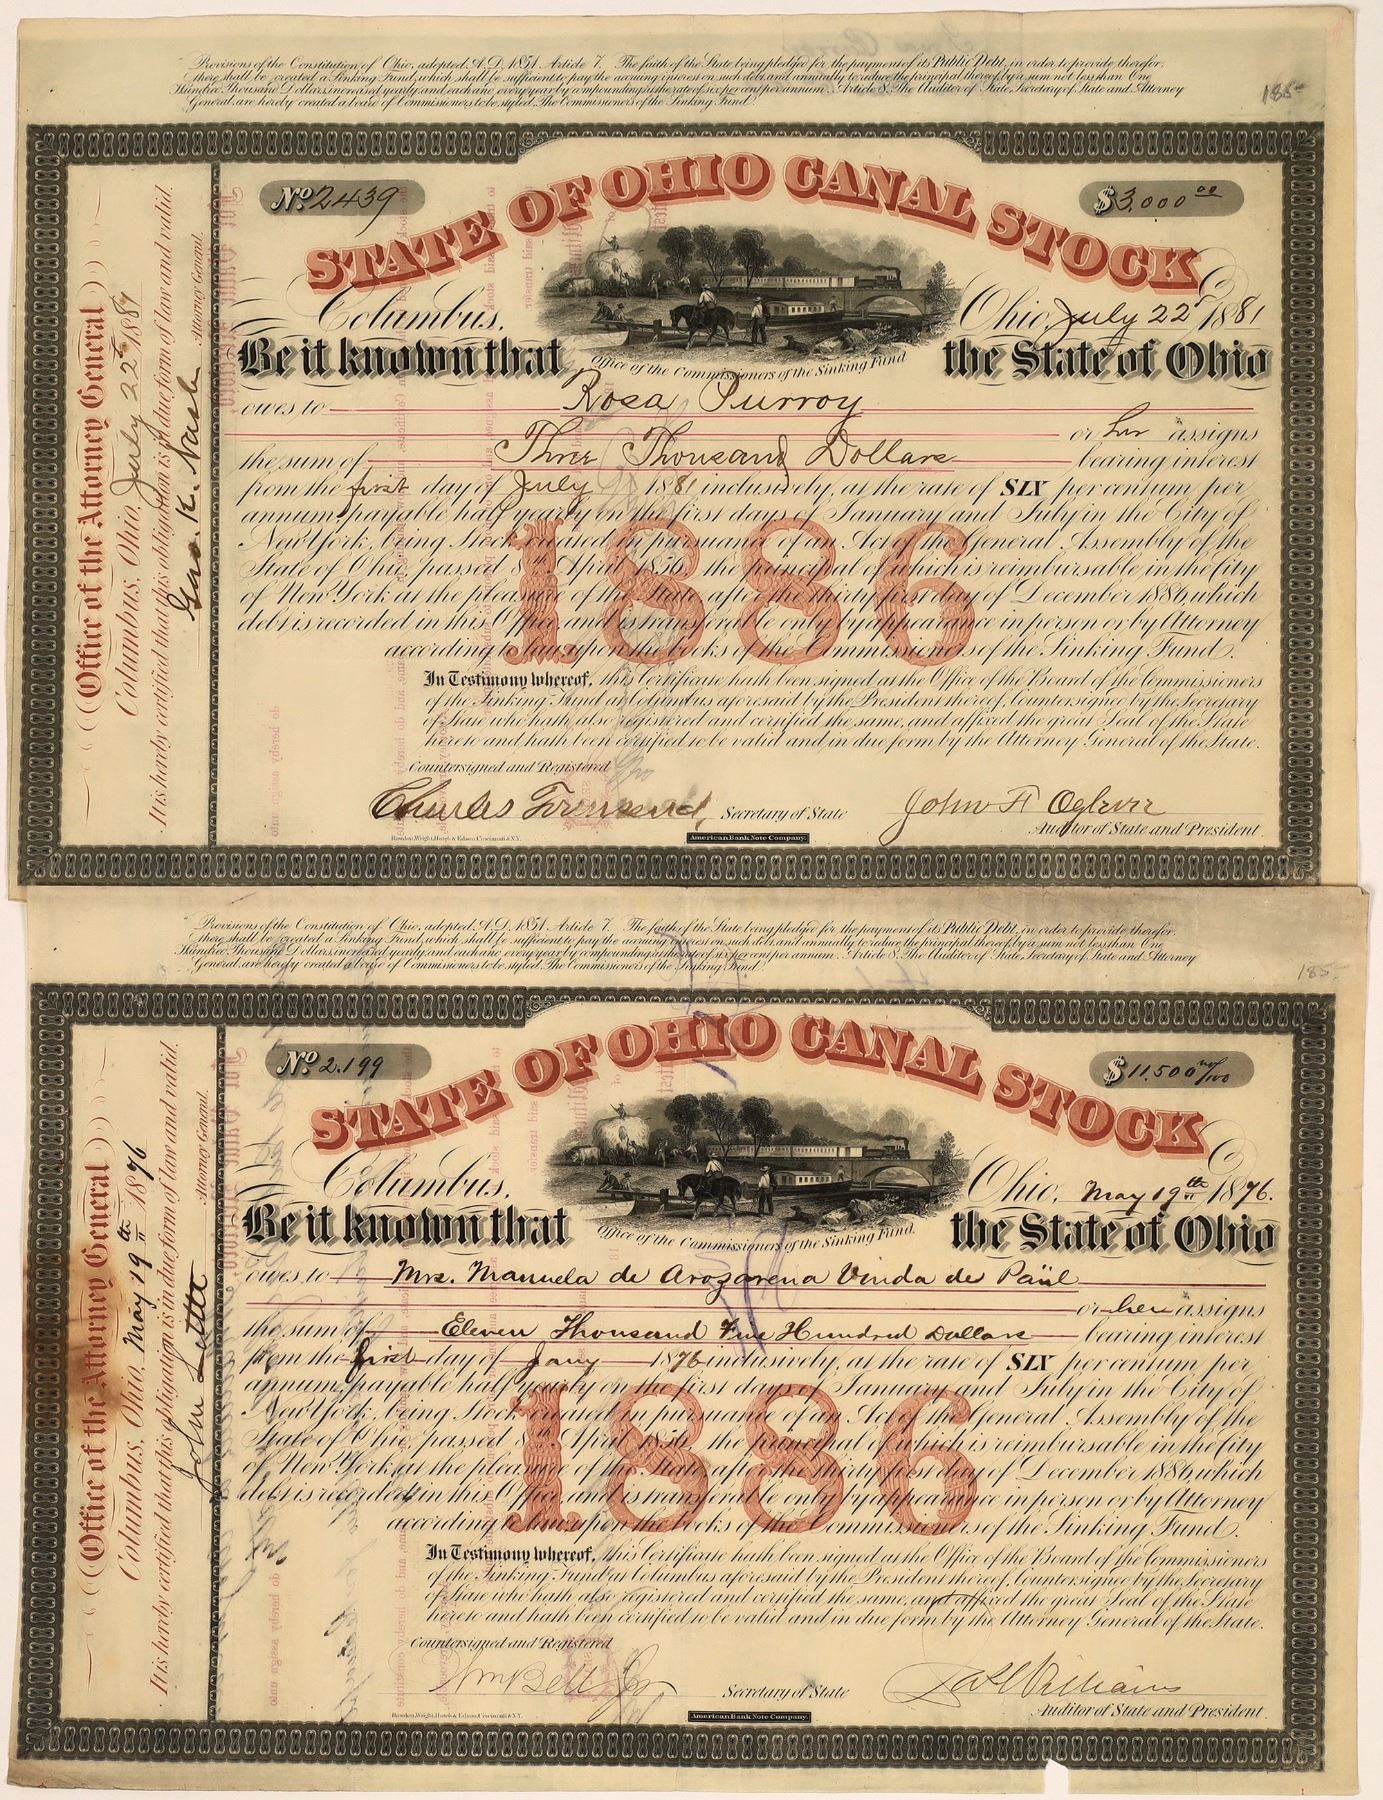 Provisions of the Constitution of Ohio, adopted, A.D. 1851. Article 7. The faith of the State being pledged for the payment of its Public Debt, in order to provide therefor,
there shall be created a Sinking Fund, which shall be sufficient to pay the accruing interest on such debt and annually to reduce the principal thereof by a sum not less than One
Hundred Thousand Dollars, increased yearly, and each and every year by compounding at the rate of six per cent per annum. Article 8. The Auditor of State, Secretary of State and Attorney
General, are hereby created a board of Commissioners to be styled, The Commissioners of the Sinking Fund.
185-
Office of the Attorney General
Columbus, Ohio, July 22d 1881
It is hereby certified that this obligation is in due form of law and valid.
Geo. K. Nash
Attorney General.
No. 2439
$3,000 00
STATE OF OHIO CANAL STOCK
Columbus, Ohio, July 22d 1881
Be it known that the State of Ohio
Office of the Commissioners of the Sinking Fund
owes to Rosa Purroy
or her assigns
the sum of Three Thousand Dollars bearing interest
from the first day of July 1881 inclusively, at the rate of SIX per centum per
annum, payable half yearly on the first days of January and July in the City of
New York, being Stock created in pursuance of an Act of the General Assembly of the
State of Ohio, passed 8th April 1856, the principal of which is reimbursable in the City
of New York at the pleasure of the State, after the thirty first day of December 1886, which
debt is recorded in this Office, and is transferable only by appearance in person or by Attorney
according to law, upon the books of the Commissioners of the Sinking Fund.
1886
In Testimony whereof, this Certificate hath been signed at the Office of the Board of the Commissioners
of the Sinking Fund at Columbus aforesaid by the President thereof, Countersigned by the Secretary
of State who hath also registered and certified the same, and affixed the great Seal of the State
hereto and hath been certified to be valid and in due form by the Attorney General of the State.
Countersigned and Registered
Charles Townsend, Secretary of State
John F Oglevee
Auditor of State and President.
American Bank Note Company.
Provisions of the Constitution of Ohio, adopted, A.D. 1851. Article 7. The faith of the State being pledged for the payment of its Public Debt, in order to provide therefor,
there shall be created a Sinking Fund, which shall be sufficient to pay the accruing interest on such debt and annually to reduce the principal thereof by a sum not less than One
Hundred Thousand Dollars, increased yearly, and each and every year by compounding at the rate of six per cent per annum. Article 8. The Auditor of State, Secretary of State and Attorney
General, are hereby created a board of Commissioners to be styled, The Commissioners of the Sinking Fund.
185-
Office of the Attorney General
Columbus, Ohio, May 19th 1876
It is hereby certified that this obligation is in due form of law and valid.
John Little
Attorney General.
No. 2.199
$11,500 no/100
STATE OF OHIO CANAL STOCK
Columbus, Ohio, May 19th 1876.
Be it known that the State of Ohio
Office of the Commissioners of the Sinking Fund.
owes to Mrs. Manuela de Arozarena Vinda de Paül
or her assigns
the sum of Eleven Thousand Five Hundred Dollars bearing interest
from the first day of Jany 1876 inclusively, at the rate of SIX per centum per
annum, payable half yearly on the first days of January and July in the City of
New York, being Stock created in pursuance of an Act of the General Assembly of the
State of Ohio, passed 8th April 1856, the principal of which is reimbursable in the City
of New York at the pleasure of the State, after the thirty first day of December 1886, which
debt is recorded in this Office, and is transferable only by appearance in person or by Attorney
according to law, upon the books of the Commissioners of the Sinking Fund.
1886
In Testimony whereof, this Certificate hath been signed at the Office of the Board of the Commissioners
of the Sinking Fund at Columbus aforesaid by the President thereof, Countersigned by the Secretary
of State who hath also registered and certified the same, and affixed the great Seal of the State
hereto and hath been certified to be valid and in due form by the Attorney General of the State.
Countersigned and Registered
Wm Bell Jr Secretary of State
Jas Williams
Auditor of State and President.
American Bank Note Company.